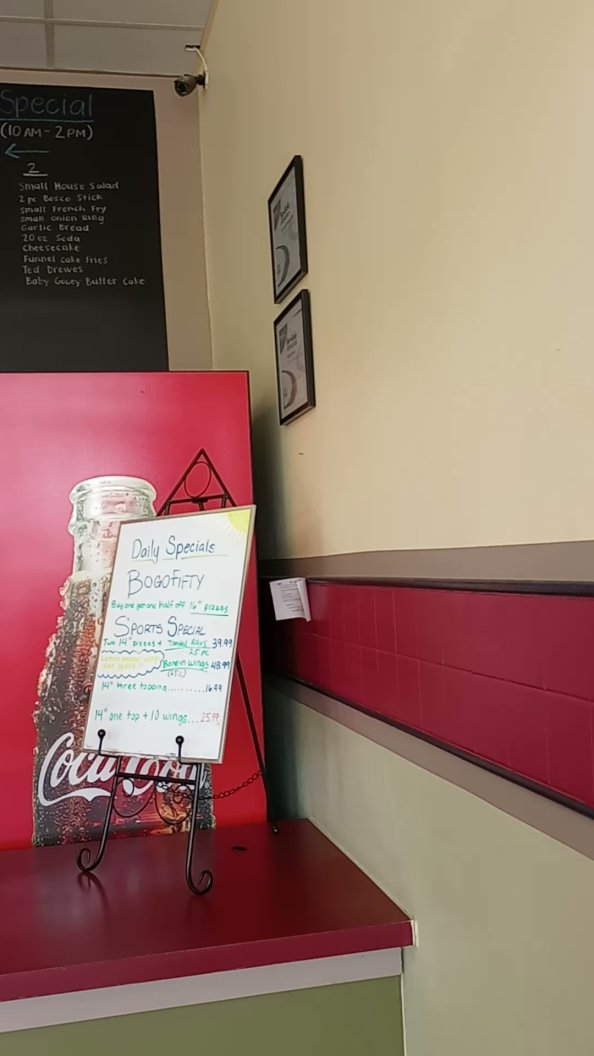 Special
(10 AM - 2 PM)
2
Small House Salad
2 pc Bosco Stick
Small French Fry
Small Onion Ring
Garlic Bread
20 oz Soda
Cheesecake
Funnel Cake Fries
Ted Drewes
Baby Gooey Butter Cake
Daily Specials
BOGOFIFTY
Buy one get one half off 16" pizzas
SPORTS SPECIAL
Two 14" pizzas + Toasted Ravs 39.99
25 pc
Bone in wings 48.99
(25)
14" three topping.........16.99
14" one top + 10 wings...25.99
Coca-Cola